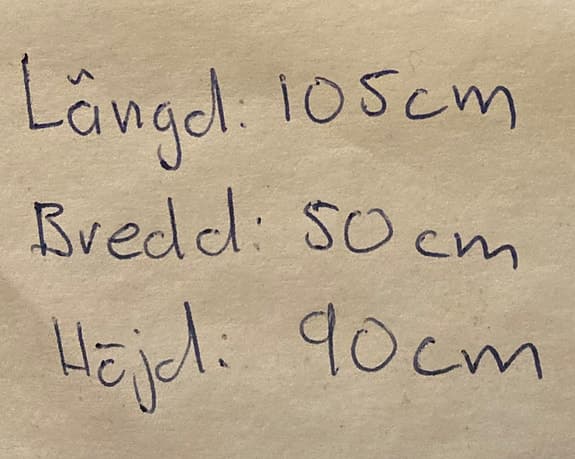 Längd: 105cm
Bredd: 50 cm
Höjd: 90cm